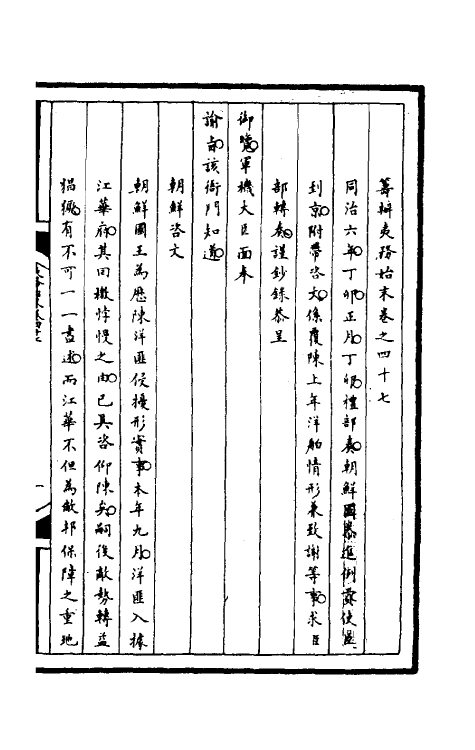 籌辦夷務始末卷之四十七
同治六年丁卯正月丁卯禮部奏朝鮮國恭進例貢使臣
到京附帶咨文係覆陳上年洋舶情形兼致謝等事求臣
部轉奏謹鈔錄恭呈
御覽軍機大臣面奉
諭旨該衙門知道
朝鮮咨文
朝鮮國王為歷陳洋匪侵擾形實事本年九月洋匪入據
江華府其回檄悖慢之由已具咨仰陳矣嗣後敵勢轉益
猖獗有不可一一盡述而江華不但為敝邦保障之重地